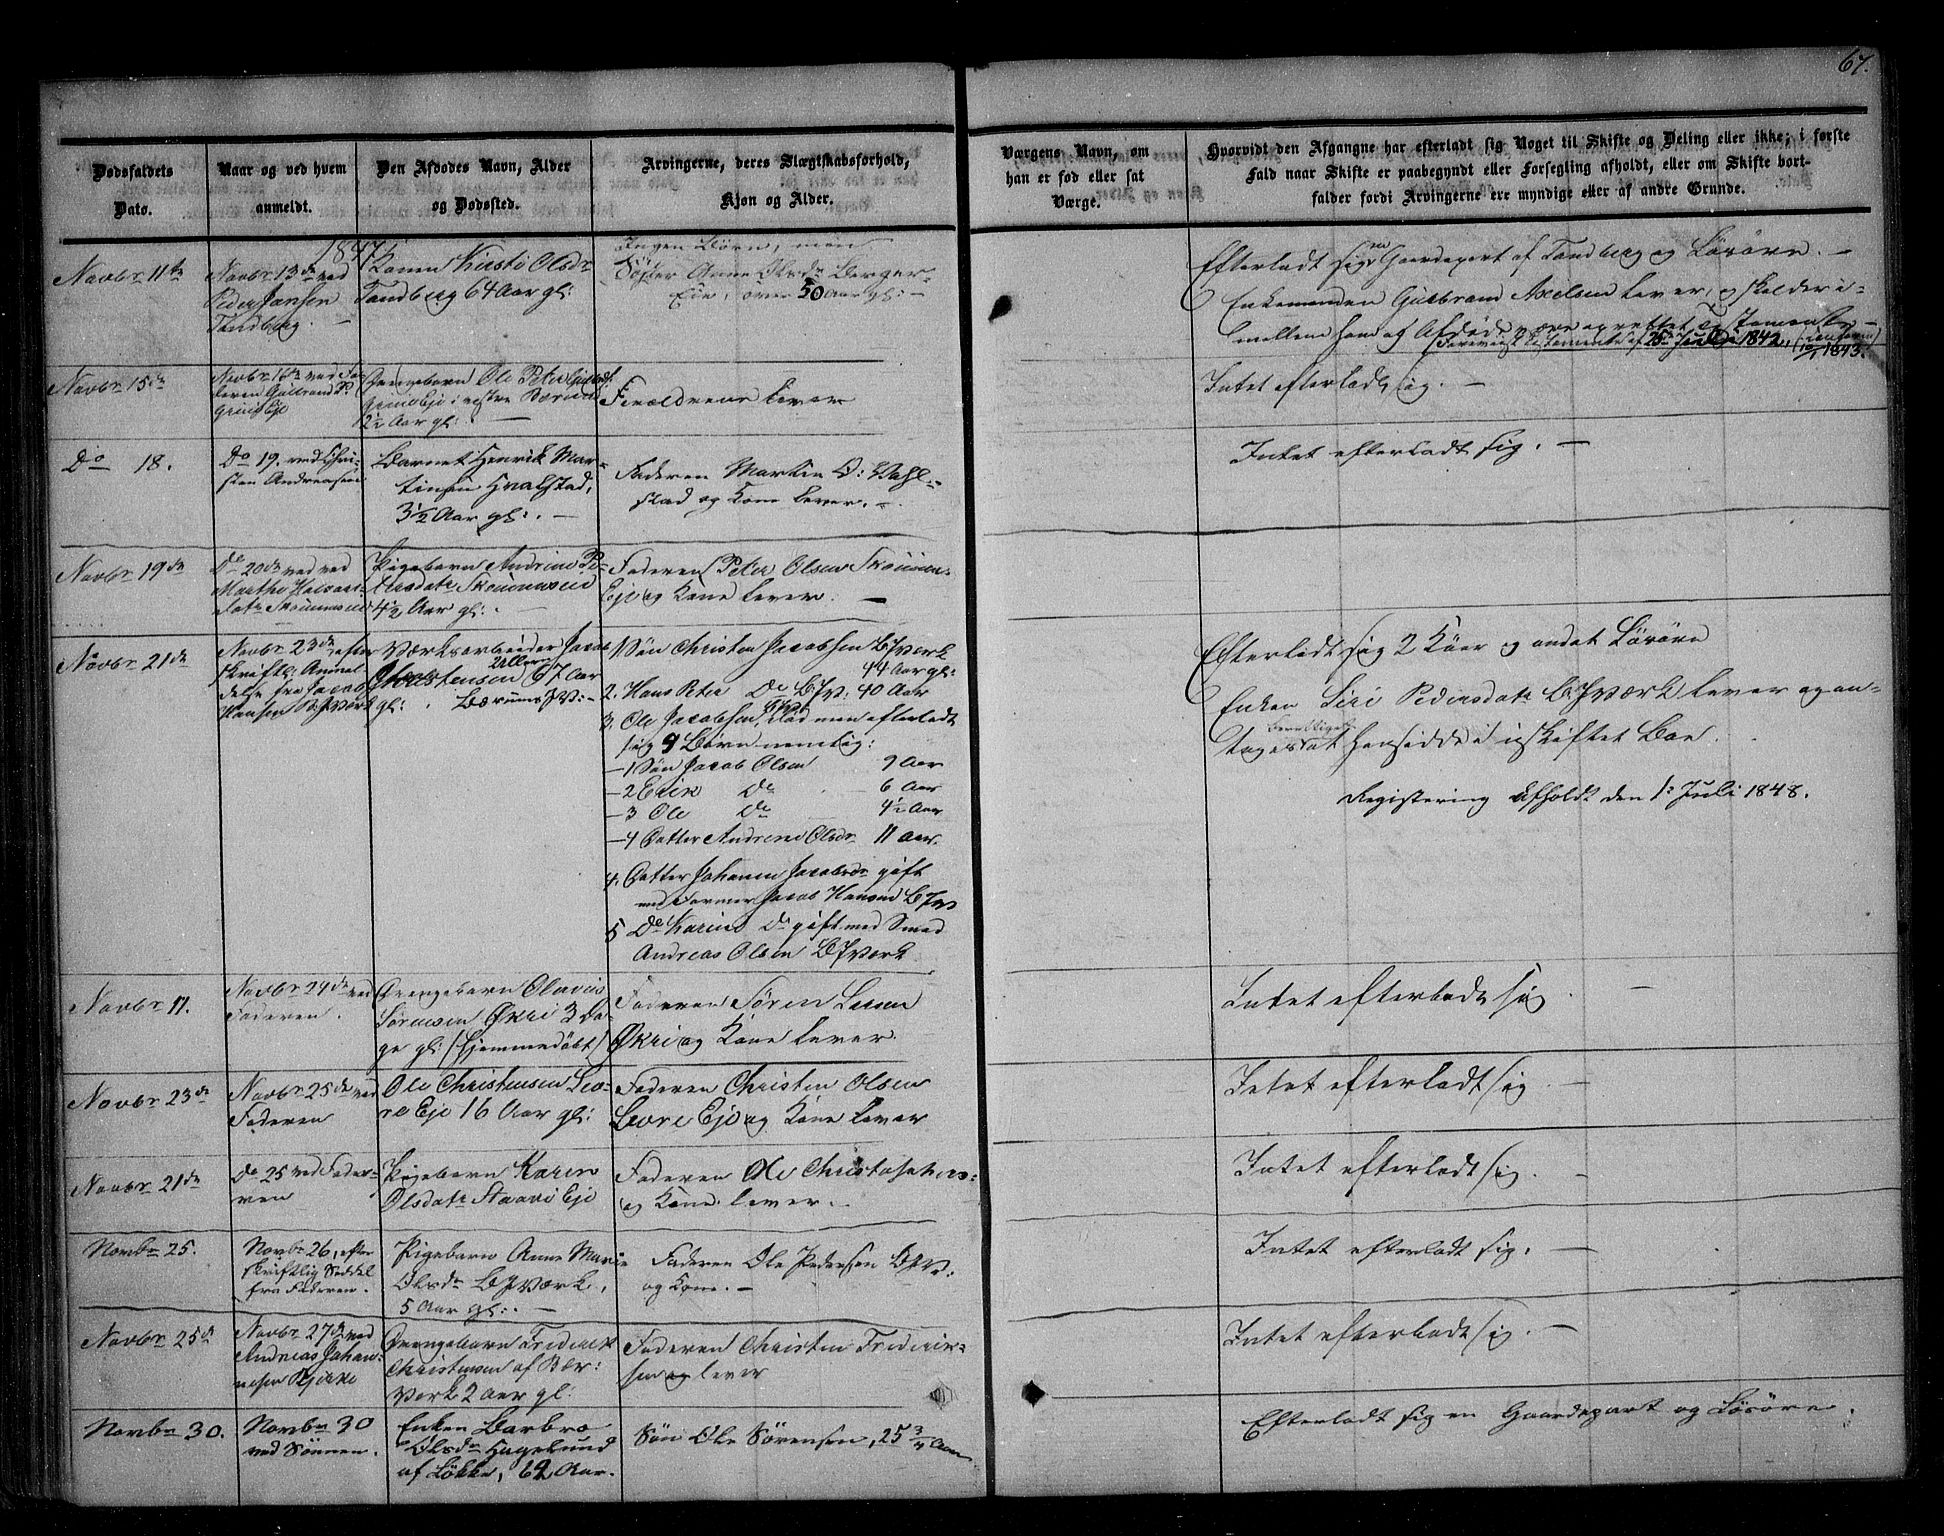 67.
Dødsfaldets Dato.
Naar og ved hvem anmeldt.
Den Afdødes Navn, Alder og Dødssted.
Arvingerne, deres Slægtskabsforhold, Kjøn og Alder.
Værgens Navn, om han er fød eller sat Værge.
Hvorvidt den Afgangne har efterladt sig Noget til Skifte og Deling eller ikke; i første
Fald naar Skifte er paabegyndt eller Forsegling afholdt, eller om Skifte bort-
falder fordi Arvingerne ere myndige eller af andre Grunde.
1847
Novbr 11te
Novbr 13de ved
Peder Jansen
Tandberg. —
Konen Kirsti Olsdr
Tandberg 64 Aar gl:
Ingen Børn, men
Søster Anne Olsdr Berger
Eie, over 50 Aar gl: —
Efterladt sig en Gaardepart af Tandberg og Løsøre. —
Enkemanden Gulbrand Axelsen lever, og skal der i-
mellem ham og Afdøde være oprettet Testamente —
Testamente af 25de Juli 1842,
1843.
Novbr 15de
Novbr 16de ved Fa-
deren Gulbrand P.
Griniseje
Drengebarn Ole Peter Gulbrds:
Grinis Eje i vestre Bærum
2½ Aar gl:
Forældrene lever
Intet efterladt sig. —
Do 18.
Do 19. ved Chri-
sten Andreasen
Barnet Henrik Mar-
tinsen Hvalstad,
3½ Aar gl:. —
Faderen Martin O: Vahl-
stad og Kone lever. —
Intet efterladt sig. —
Novbr 19de
De 20de ved
Marthe Halvors-
datr
Pigebarn Andrine Pe-
tersdatr
4½ Aar gl:. —
Faderen Peter Olsen
Eje og Kone lever. —
Novbr 21de
Novbr 23de efter
skriftl: Anmel-
delse fra Jacob
Hansen BJværk
Værksarbeider Jacob
Christensen Ullern 67 Aar
gl:. Bærums JV: —
1 Søn Christen Jacobsen BJværk
44 Aar gl:
2. Hans Peter De BJv: 40 Aar
3. Ole Jacobsen, BJv: død men efterladt
sig 4 Børn nemlig:
— 1 Søn Jacob Olsen 9 Aar
— 2 Erik De 6 Aar
— 3 Ole De 4½ Aar
— 4 Datter Andrine Olsdr 11 Aar.
4. Datter Johanne Jacobsdr gift
med Former Jacob Hansen BJv
5 De Karine De gift med Smed
Andreas Olsen BJværk
Efterladt sig 2 Køer og andet Løsøre
Enken Siri Pedersdatr BJværk lever og an-
tages bevilliget at hensidde i uskiftet Boe.
Registering afholdt den 1: Juli 1848.
Novbr 17.
Novbr 24de ved
Faderen.
Drengebarn Olavius
Sørensen Økri 3 Da-
ge gl: (hjemmedøbt)
Faderen Søren Larsen
Økri og Kone lever.
Intet efterladt sig. —
Novbr 23de
Novbr 25de ved
Faderen
Ole Christensen Lev-
re Eje 16 Aar gl:
Faderen Christen Olsen
Levre Eje og Kone lever
Intet efterladt sig. —
Novbr 21de
De 25 ved Fade-
ren
Pigebarn Karen
Olsdatr Staavi Eje
Faderen Ole Christophersen:
og Kone lever. —
Intet efterladt sig. —
Novbr 25.
Novbr 26, efter
skriftlig Seddel
fra Faderen.
Pigebarn Anne Marie
Olsdr BJværk,
5 Aar gl:. —
Faderen Ole Pedersen BJv:
og Kone. —
Intet efterladt sig. —
Novbr 25de
Novbr 27de ved
Andreas Johan-
nesen Bjerke
Drengebarn Frederik
Christensen af Bær:
Verk 2 Aar gl:
Faderen Christen Frederik-
sen og lever
Intet efterladt sig. —
Novbr 30.
Novbr 30
ved Sønnen.
Enken Barbro
Olsdr Hagelund
af Løkke, 62 Aar.
Søn Ole Sørensen, 25 3/4 Aar
Efterladt sig en Gaardepart og Løsøre.